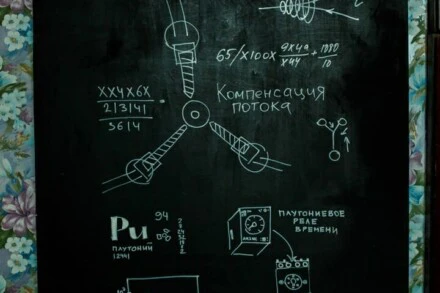 65/X100X
1980
10
XX4X6X
2|3|4|
36|4
Компенсация
потока
Pu
94
плутоний
плутониевое
реле
времени